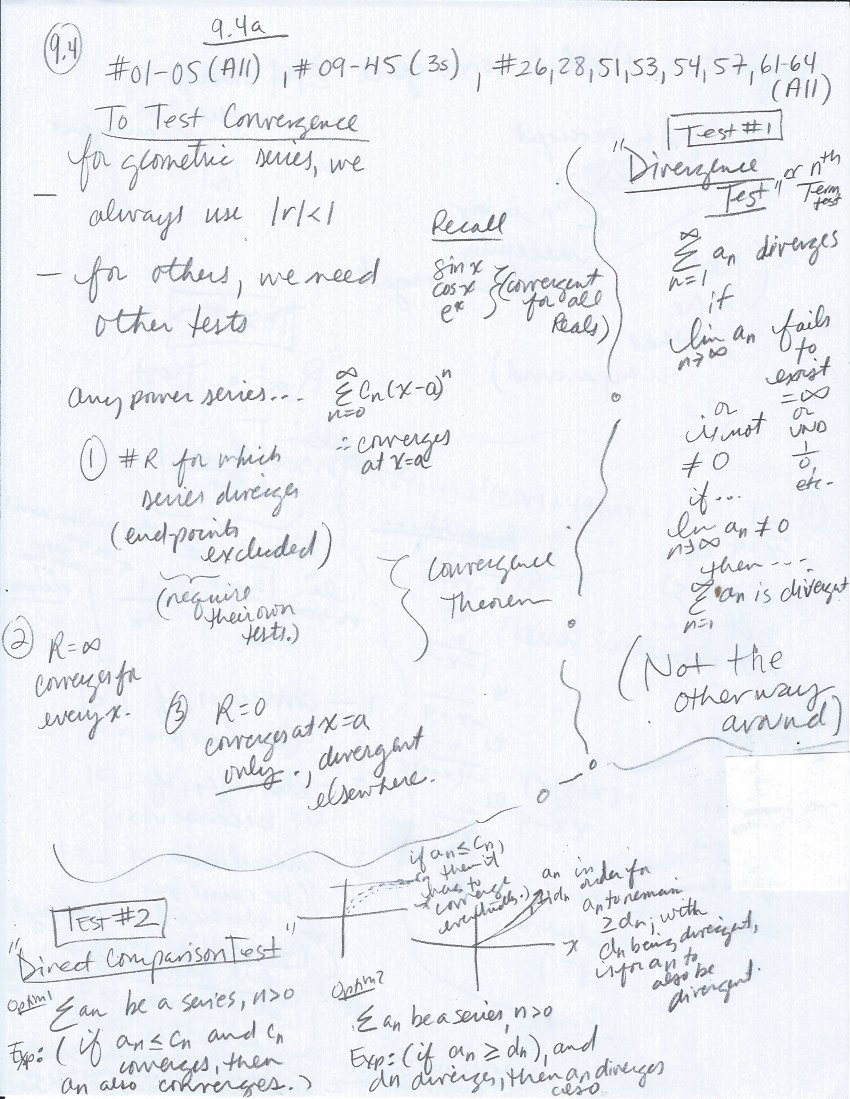 9.4
9.4a
#01-05 (All), #09-45 (3s), #26, 28, 51, 53, 54, 57, 61-64
(All)
To Test Convergence
for geometric series, we
always use |r|<1
- for others, we need
other tests
Recall
sin x
cos x
e^x
(convergent
for all
Reals)
any power series... ∞Σn=0 Cn(x-a)^n
∴ converges
at x=a
① #R for which
series diverges
(endpoints
excluded)
(require
their own
tests.)
Convergence
Theorem
② R=∞
converges for
every x.
③ R=0
converges at x=a
only., divergent
elsewhere.
Test #1
"Divergence
Test" or nth
Term
test
∞Σn=1 an diverges
if
lim n→∞ an fails
to
exist
=∞
or
UND
1/0,
etc.
or
is not
≠ 0
if...
lim n→∞ an ≠ 0
then....
∞Σn=1 an is divergent
(Not the
other way
around)
TEST #2
"Direct Comparison Test"
if an ≤ Cn,
then it
has to
converge
eventually.)
an in
order for
an to remain
≥ dn, with
dn being divergent,
is for an to
also be
divergent.
cn
dn
x
Option 1
Σ an be a series, n>0
Exp: (if an ≤ Cn and Cn
converges, then
an also converges.)
Option 2
Σ an be a series, n>0
Exp: (if an ≥ dn), and
dn diverges, then an diverges
also